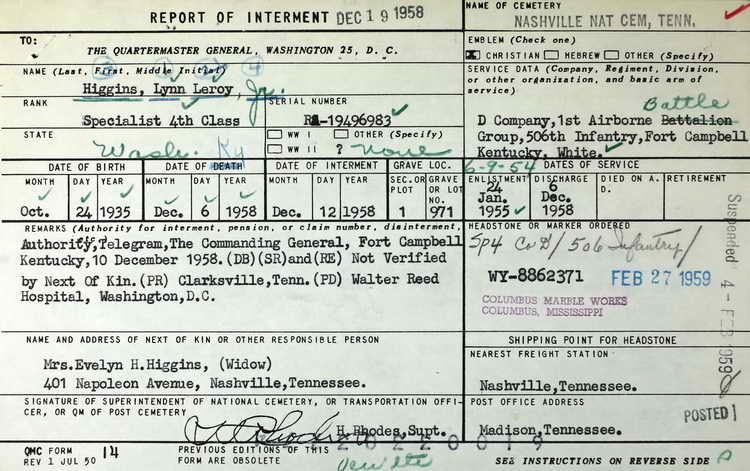 REPORT OF INTERMENT DEC 19 1958
NAME OF CEMETERY
NASHVILLE NAT CEM, TENN.
TO:
THE QUARTERMASTER GENERAL, WASHINGTON 25, D. C.
EMBLEM (Check one)
CHRISTIAN HEBREW OTHER (Specify)
NAME (Last, First, Middle Initial)
Higgins, Lynn Leroy, Jr.
SERVICE DATA (Company, Regiment, Division, or other organization, and basic arm of service)
Battle
D Company,1st Airborne Battalion
Group,506th Infantry,Fort Campbell
Kentucky, White.
RANK
Specialist 4th Class
SERIAL NUMBER
RA-19496983
STATE
Wash. Ky
WW I OTHER (Specify)
WW II ? None
DATE OF BIRTH DATE OF DEATH DATE OF INTERMENT GRAVE LOC.
6-9-54 DATES OF SERVICE
MONTH DAY YEAR MONTH DAY YEAR MONTH DAY YEAR SEC.OR PLOT GRAVE OR LOT NO.
ENLISTMENT DISCHARGE DIED ON A. D. RETIREMENT
Oct. 24 1935 Dec. 6 1958 Dec. 12 1958 1 971
24 Jan. 1955
6 Dec. 1958
REMARKS (Authority for interment, pension, or claim number, disinterment,
Authority,Telegram,The Commanding General, Fort Campbell
Kentucky,10 December 1958.(DB)(SR)and(RE) Not Verified
by Next Of Kin.(PR) Clarksville,Tenn.(PD) Walter Reed
Hospital, Washington,D.C.
HEADSTONE OR MARKER ORDERED
Sp4 Co D/506 Infantry/
WY-8862371 FEB 27 1959
COLUMBUS MARBLE WORKS
COLUMBUS, MISSISSIPPI
Suspended 4 - FEB 1959
NAME AND ADDRESS OF NEXT OF KIN OR OTHER RESPONSIBLE PERSON
Mrs.Evelyn H.Higgins, (Widow)
401 Napoleon Avenue, Nashville,Tennessee.
SHIPPING POINT FOR HEADSTONE
NEAREST FREIGHT STATION
Nashville,Tennessee.
SIGNATURE OF SUPERINTENDENT OF NATIONAL CEMETERY, OR TRANSPORTATION OFFI-
CER, OR QM OF POST CEMETERY
H.Rhodes,Supt.
POST OFFICE ADDRESS
Madison,Tennessee.
POSTED
QMC FORM 14
REV 1 JUL 50
PREVIOUS EDITIONS OF THIS
FORM ARE OBSOLETE
SEE INSTRUCTIONS ON REVERSE SIDE